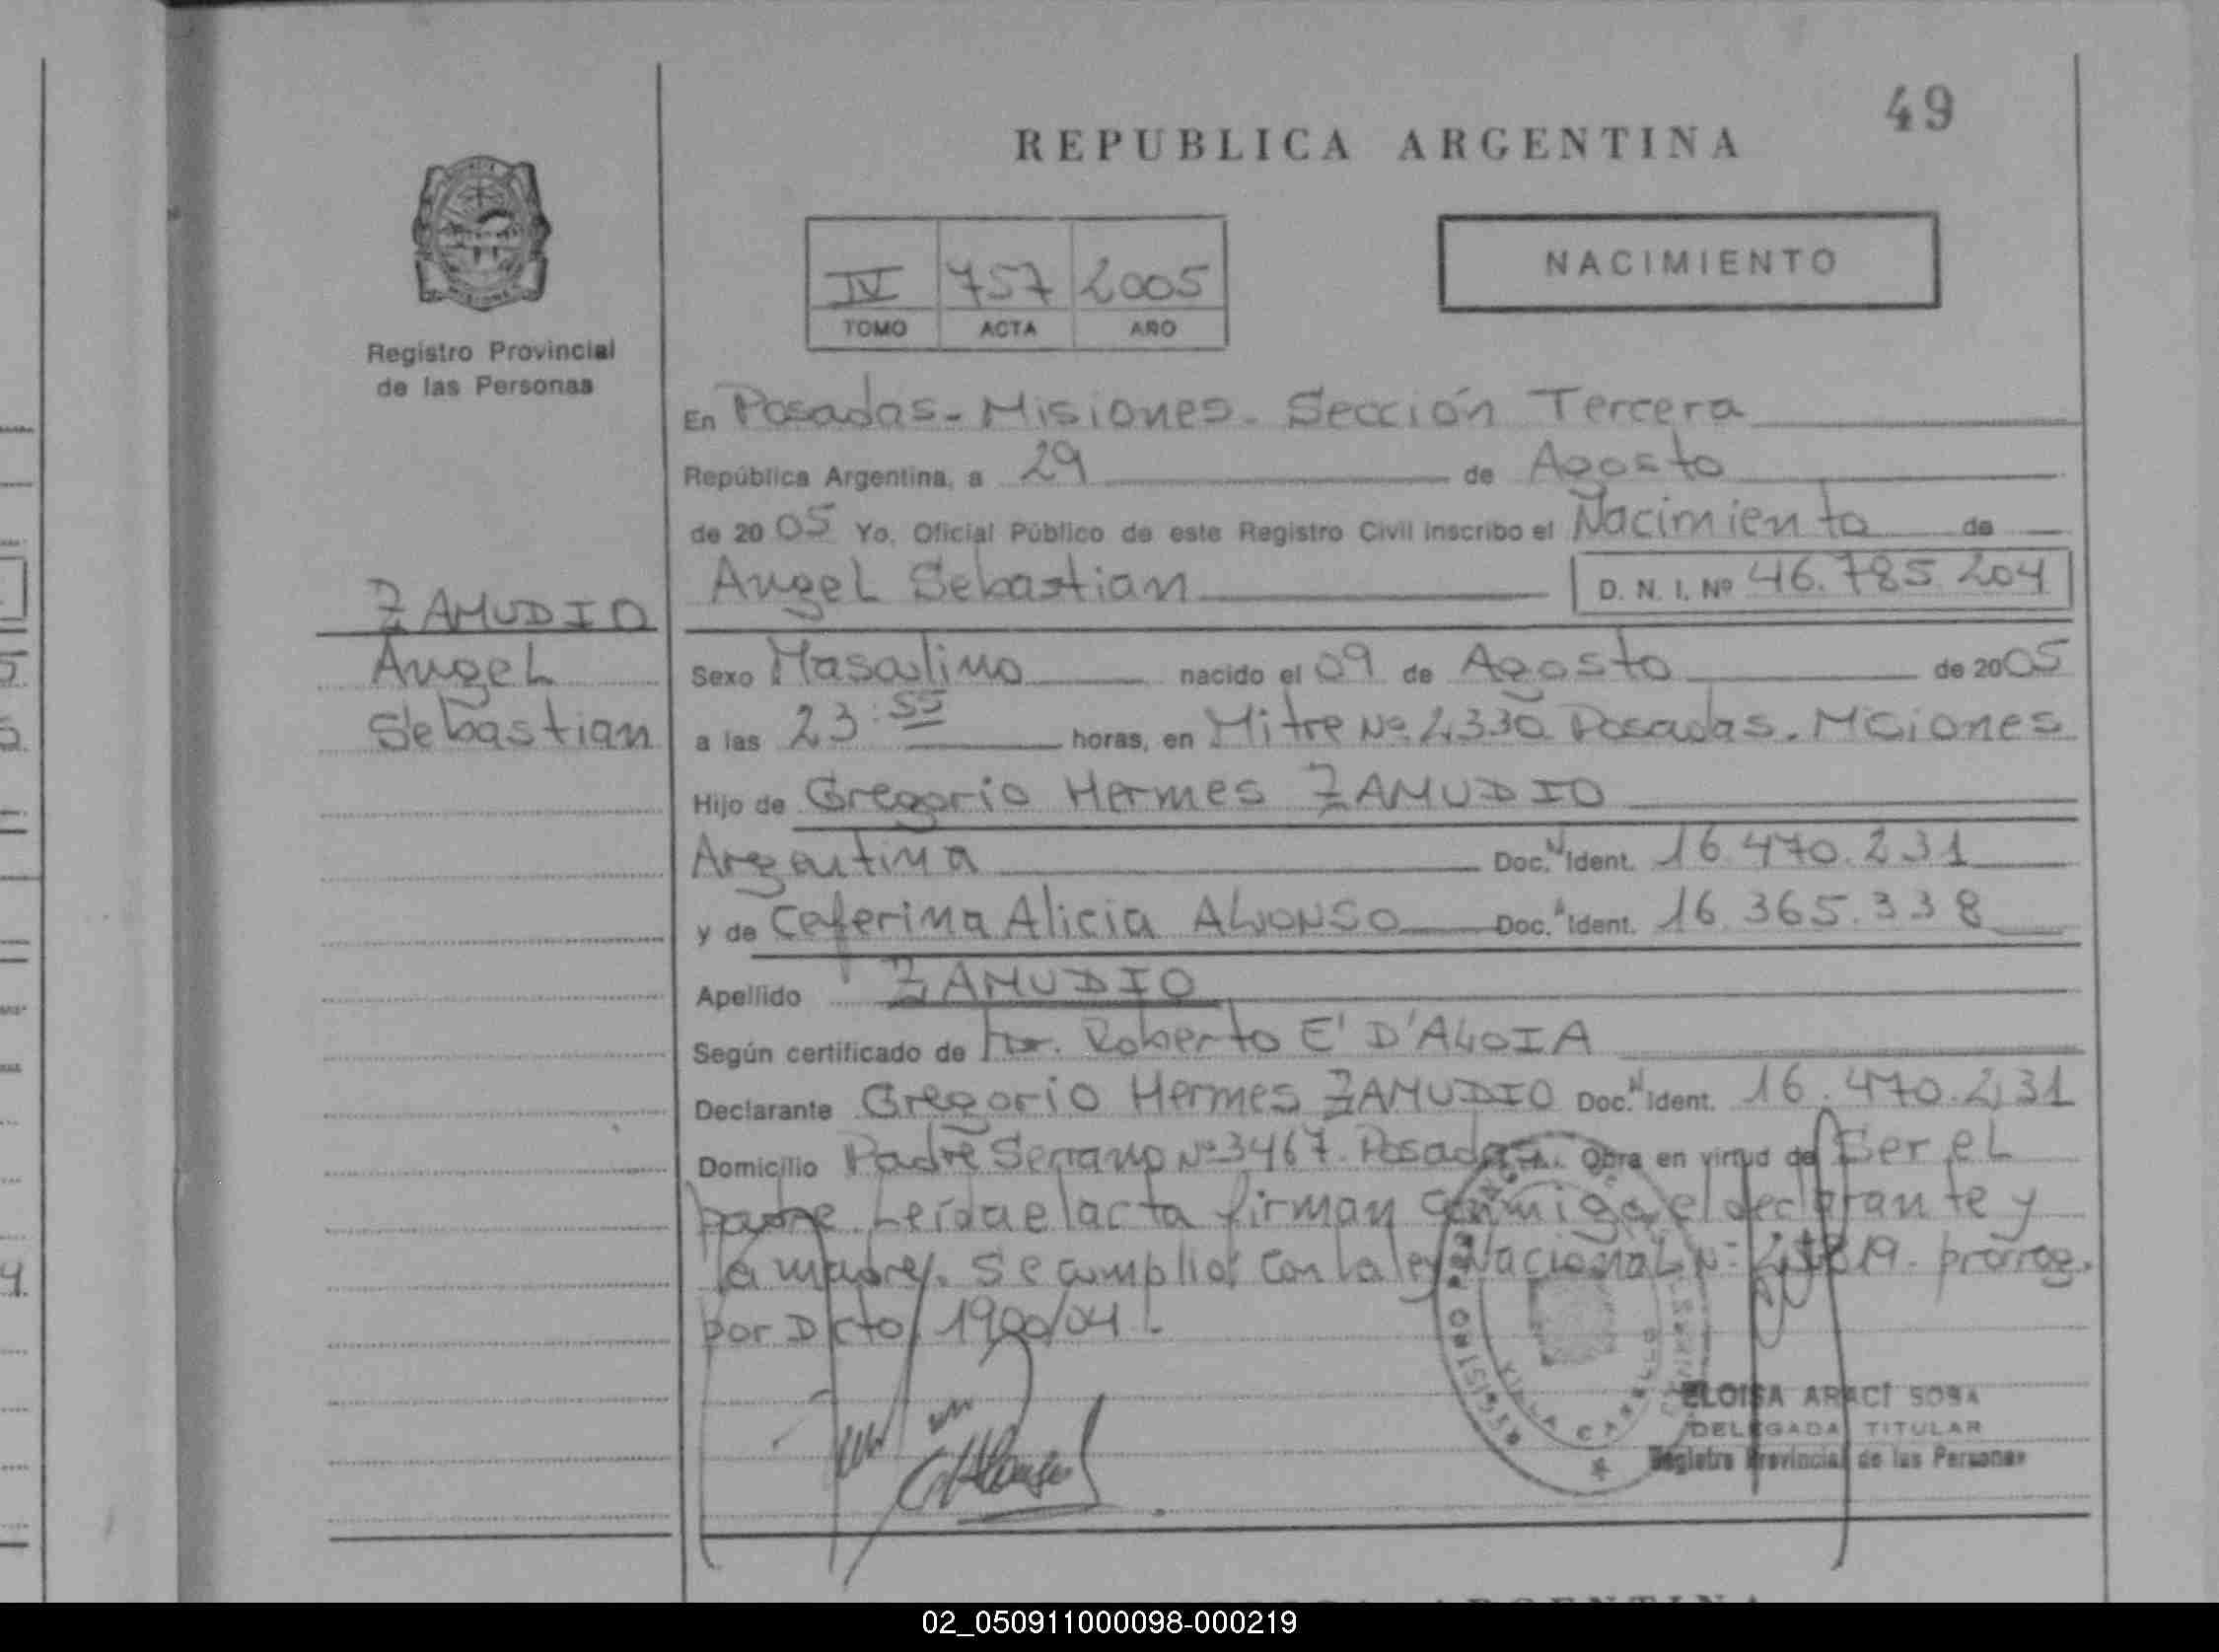 49
REPUBLICA ARGENTINA
NACIMIENTO
IV 757 2005
TOMO ACTA AÑO
Registro Provincial
de las Personas
En Posadas - Misiones - Sección Tercera
República Argentina, a 29 de Agosto
de 2005 Yo, Oficial Público de este Registro Civil inscribo el Nacimiento de
Angel Sebastian D. N. I. Nº 46.785.204
ZAMUDIO
Angel
Sebastian
Sexo Masculino nacido el 09 de Agosto de 2005
a las 23:55 horas, en Mitre Nº 2330 Posadas. Misiones
Hijo de Gregorio Hermes ZAMUDIO
Argentina Doc. Ident. 16.470.231
y de Ceferina Alicia ALONSO Doc. Ident. 16.365.338
Apellido ZAMUDIO
Según certificado de Dr. Roberto E' D'ALOIA
Declarante Gregorio Hermes ZAMUDIO Doc. Ident. 16.470.231
Domicilio Padre Serrano Nº 3467. Posadas. Obra en virtud de Ser el
padre. Leída el acta firman conmigo el declarante y
la madre. Se cumplió con la ley Nacional Nº prorrog.
por Dcto
ELOISA ARACI SOSA
DELEGADA TITULAR
Registro Provincial de las Personas
VILLA CABELLO
02_050911000098-000219